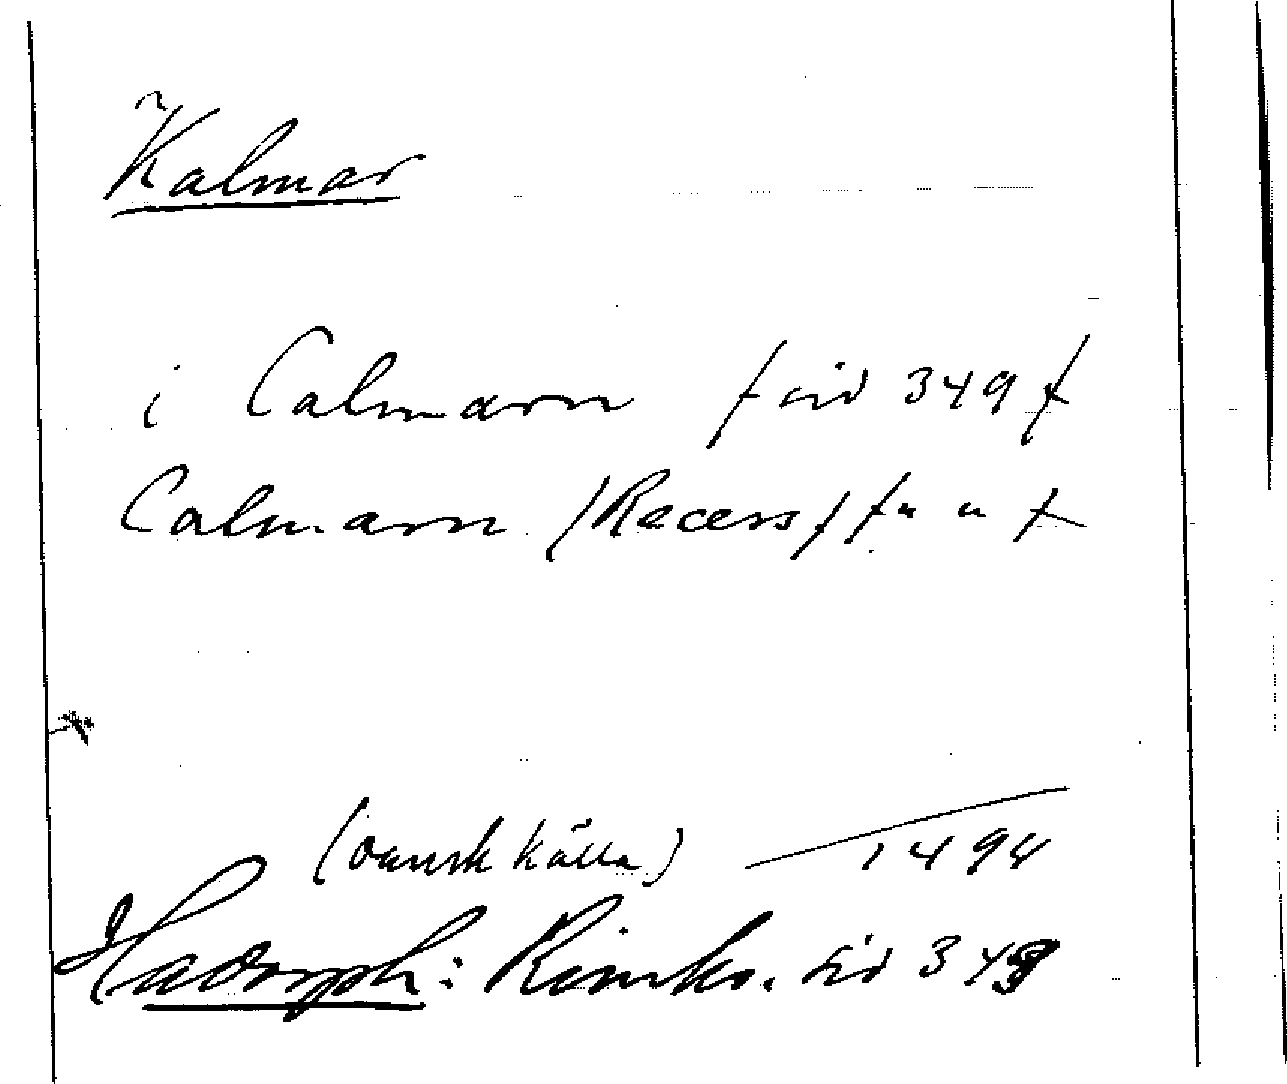 Kalmar
i Calmarn /sid 349/
Calmarn /Recess/ /" " /
(Dansk källa) 1494
Hadorph: Rimkr. sid 349